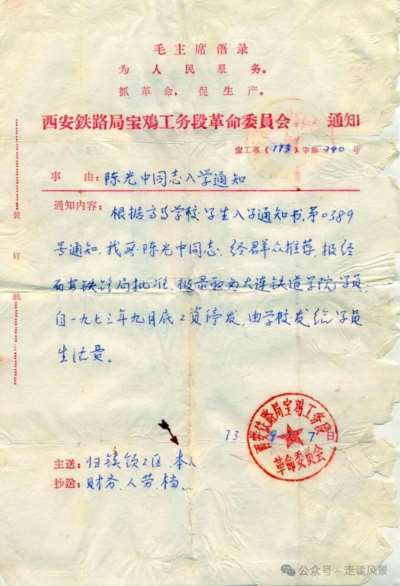 毛主席语录
为人民服务。
抓革命，促生产。
西安铁路局宝鸡工务段革命委员会 通知
宝工革(73)字第340号
事 由：陈光中同志入学通知
通知内容：根据高等学校学生入学通知书，第0389
号通知，我段陈光中同志，经群众推荐，报经
西安铁路局批准，被录取为大连铁道学院学员
自一九七三年九月底工资停发，由学校发给学员
生活费。
73 9 7日
西安铁路局宝鸡工务段
革命委员会
主送：归镇领工区、本人
抄送：财务、人劳、档。
装
订
线
公众号·走读风景